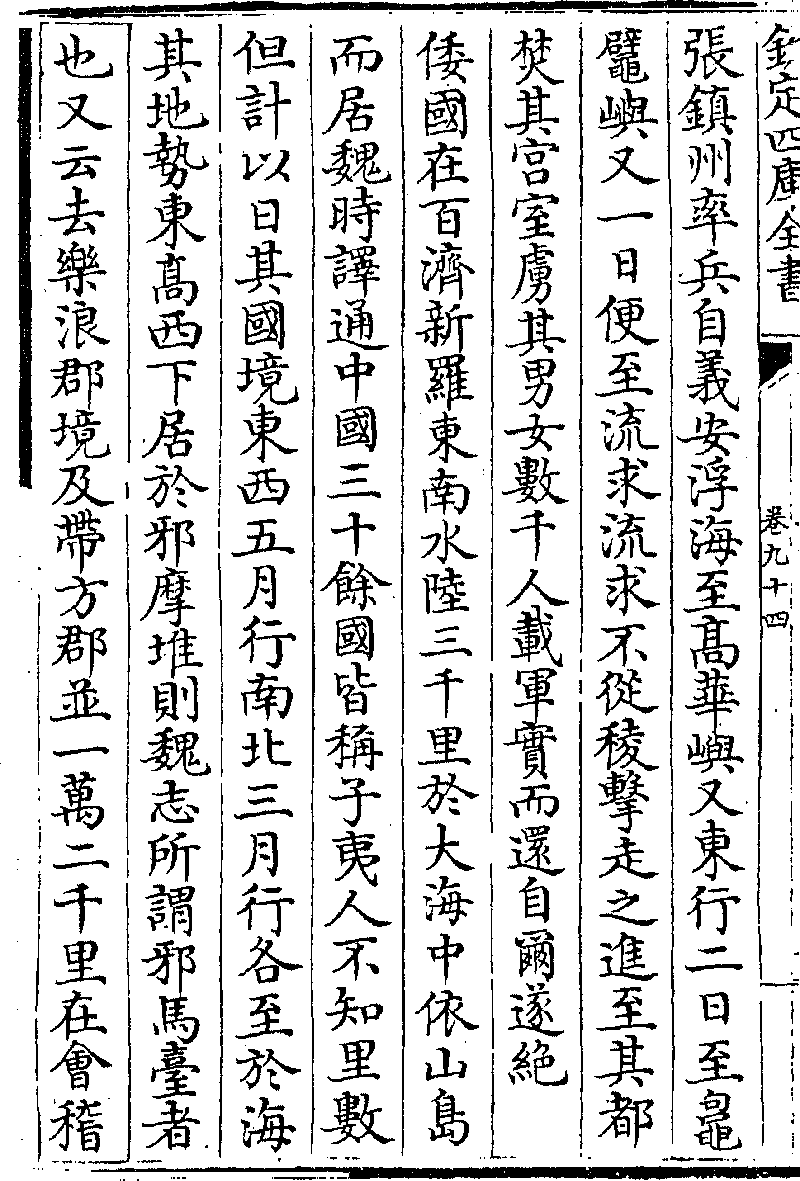 欽定四庫全書
卷九十四
張鎮州率兵自義安浮海至髙華嶼又東行二日至鼊
鼊嶼又一日便至流求流求不從稜擊走之進至其都
焚其宫室虜其男女數千人載軍實而還自爾遂絶
倭國在百濟新羅東南水陸三千里於大海中依山島
而居魏時譯通中國三十餘國皆稱子夷人不知里數
但計以日其國境東西五月行南北三月行各至於海
其地勢東髙西下居於邪摩堆則魏志所謂邪馬臺者
也又云去樂浪郡境及帶方郡並一萬二千里在會稽